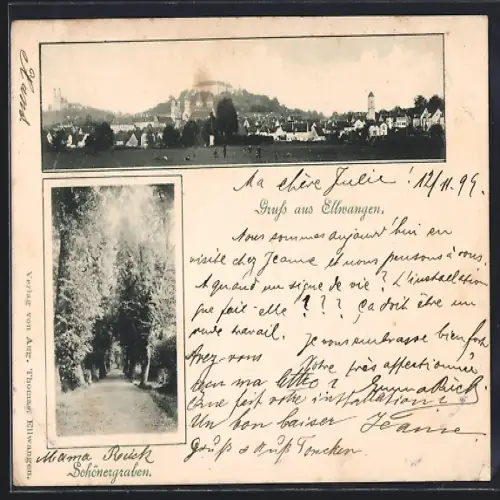 Ma chère Julie! 12/11. 99.
Gruß aus Ellwangen.
Nous sommes aujourd'hui en
visite chez Jeanne et nous pensons à vous.
A quand un signe de vie? L'installation
que fait-elle??? Ça doit être un
rude travail. Je vous embrasse bien fort
Votre très affectionnée
Emma Rück.
Avez-vous
reçu ma lettre?
Que fait votre installation?
Un bon baiser Jeanne.
Gruß u Kuß
Mama Rück
Schönergraben.
Verlag von Aug. Thomas, Ellwangen.